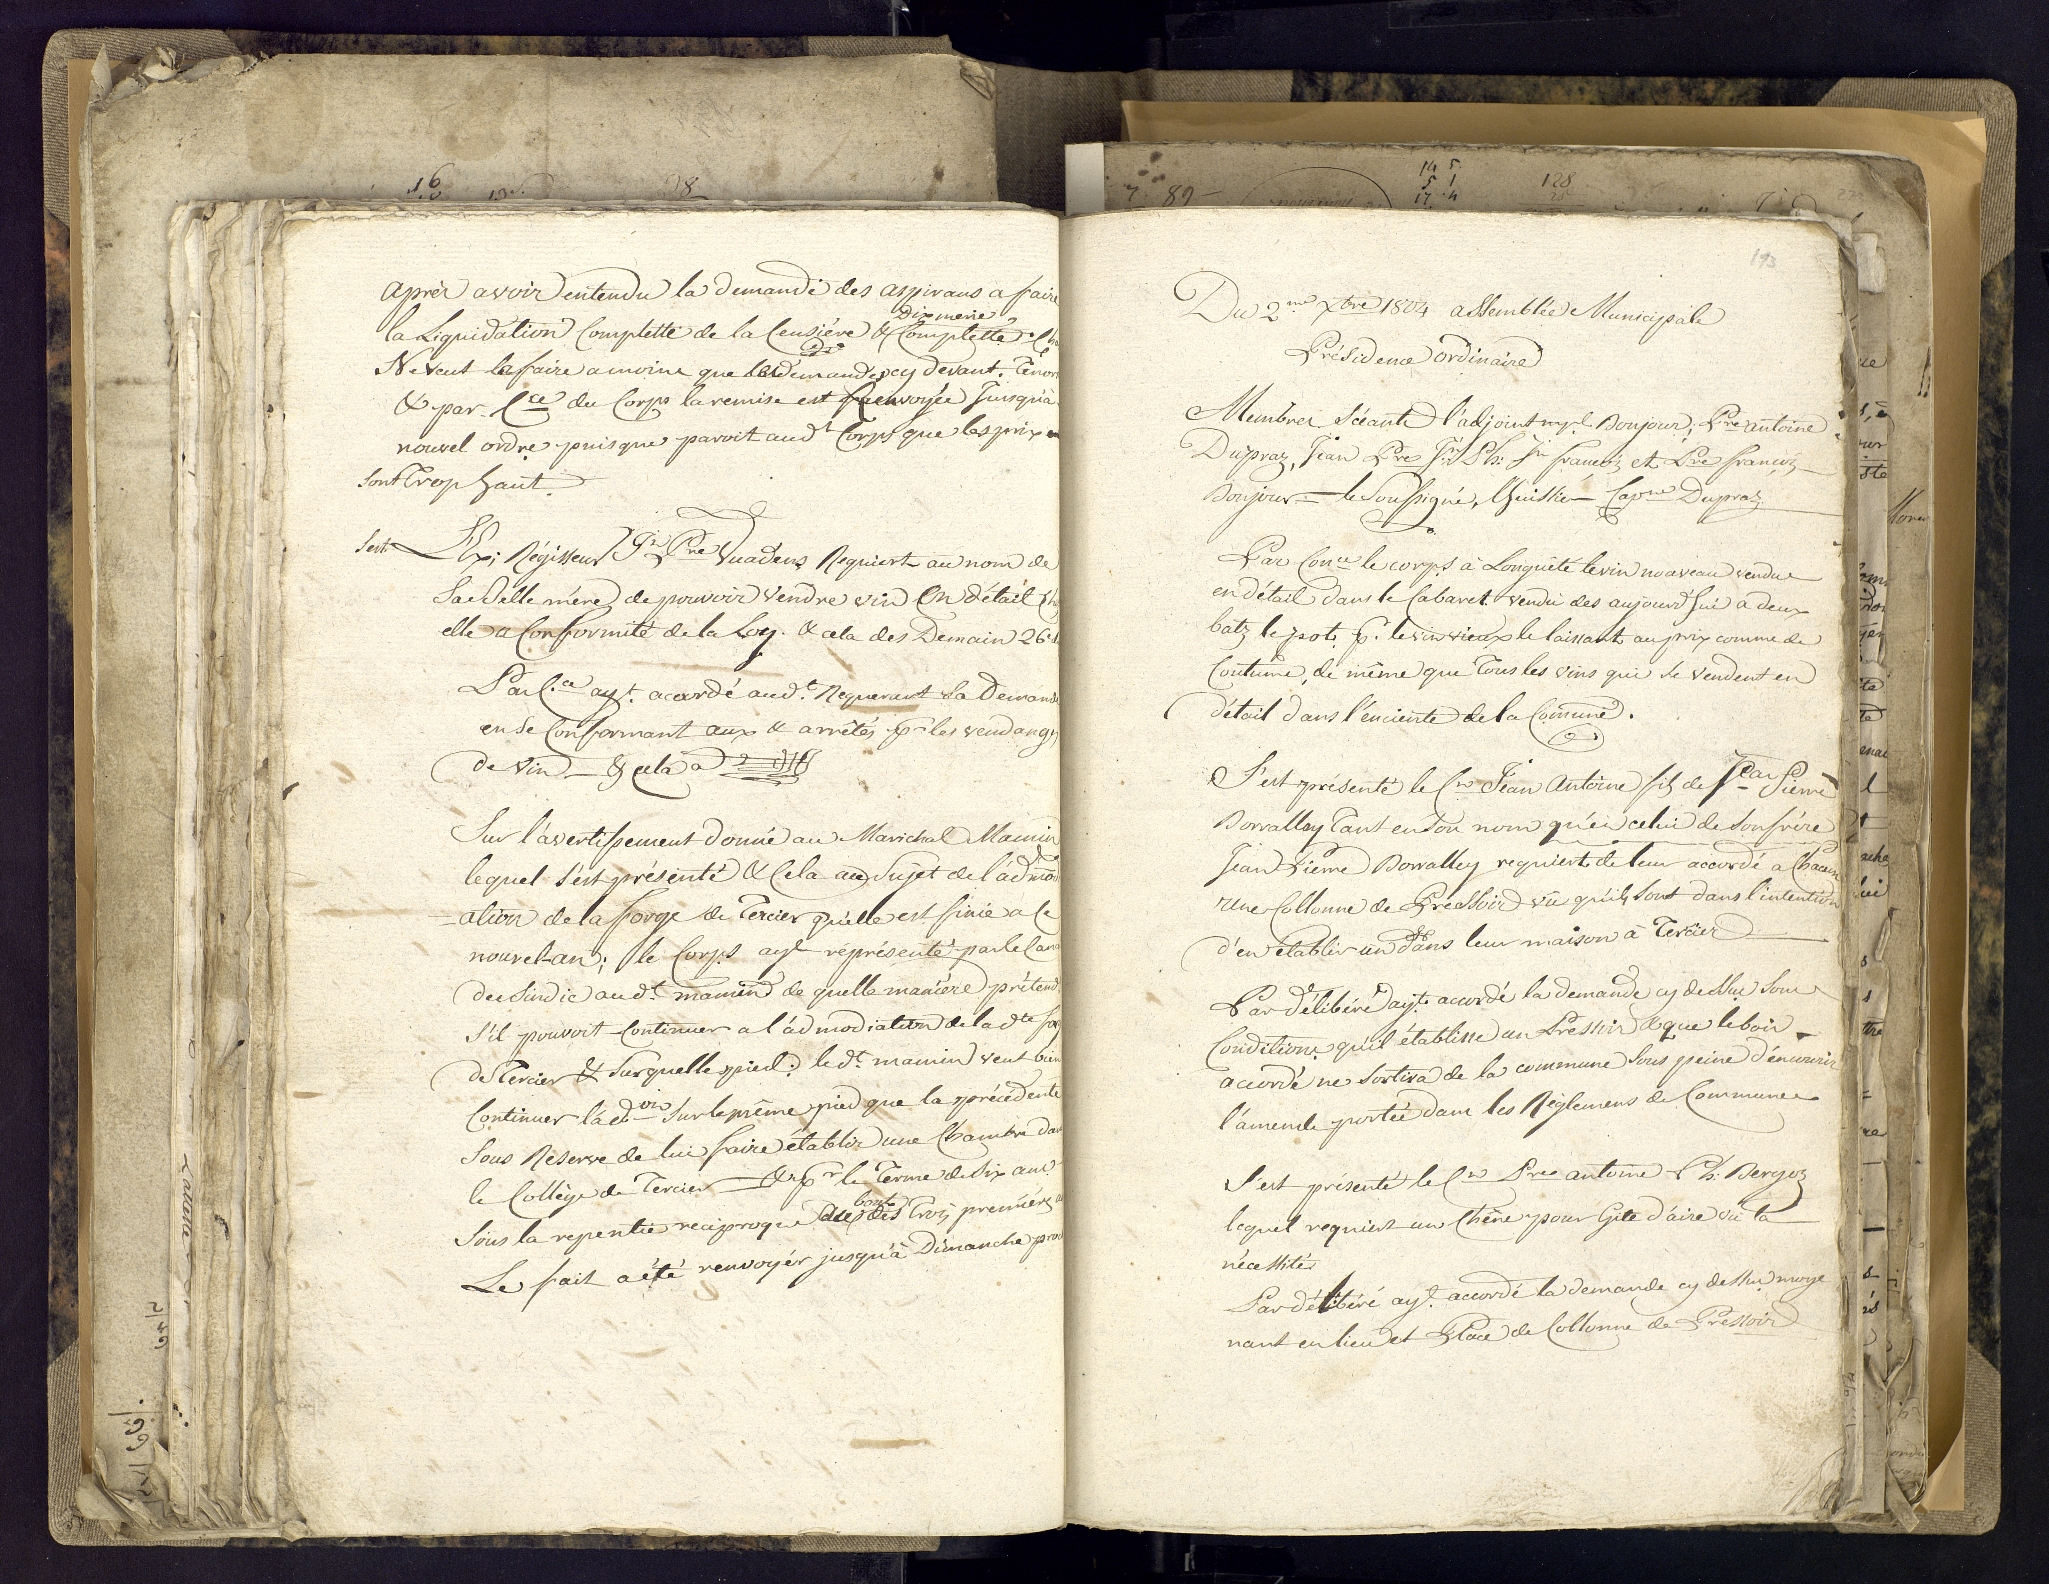 Après avoir entendu la demande des aspirans a faire
Dixmerie
la Liquidation Complette de la Censiére & Complette
Ne veut le faire amoins que les demandes cy devant.
& par Cce du Corps la remise est renvoyée Jusqu'à
nouvel ordre puisque paroit aud.t Corps que les prix
sont Trop haut.
L'Ex; Régisseur Jn Pre Vuadens Requiert au nom de
Sa Belle mère de pouvoir vendre vin En détail
elle a Conformité de la Loy. & cela des Demain 26
Par C.ce ay.t accordé aud.t Requerant Sa Demande
en se Conformant aux & arrêtés pr les vendange
de vin & cela a
Sur l'avertissement donné au Marichal Mamin
lequel s'est présenté & Cela au Sujet de l'admo
ation de la forge de Tercier qu'elle est finie a Ce
nouvel-an; le Corps ayt réprésenté par le
du Sindic aud.t mamin de quelle maniére prétend
s'il pouvoit Continuer a l'admodiation de la dte
de Tercier & Sur quelle pied: le d.t mamin veut bien
Continuer l'adon Sur le même pied que la précédente
Sous Reserve de lui faire établir une Chambre
le Collège de Tercier & pr le Terme de Six ans
Sous la repentie reciproque des Trois premiéres
Le fait a été renvoyér jusqu'à Dimanche
193
Du 2me Xbre 1804 assemblée Municipale
Présidence ordinaire
Membres Scéants l'adjoint Bonjour, Pre antoine
Dupraz, Jean Pre Ph: Jn francois et Pre françois
Bonjour le Soussigné, l'huissier Dupraz
Par Conce le corps à Lonquêté le vin nouveau vendu
en détail dans le Cabaret vendu des aujourd'hui a deux
batz le pot, pr le vin vieux le laissant au prix comme de
Coutume, de même que Tous les vins qui se vendent en
détail dans l'enciente de la Comune.
S'est présenté le Cn Jean Antoine fils de Pierre
Borralley Tant en son nom qu'en celui de Son frére
Jean Pierre Borralley requiert de leur accordé a Chacun
une Collonne de Pressoir vû qu'ils sont dans l'intention
d'en établir un dans leur maison à Tercier
Par délibéré ay.t accordé la demande cy dessus sous
Conditions qu'il établisse un Pressoir & que le bois
accordé ne Sortira de la commune sous peine d'encourir
l'amende portée dans les Réglemens de Commune
S'est présenté le Cn Pre antoine Ph: Bergoz
lequel requiert un Chêne pour Gite d'aire vu la
nécessités
Par délibéré ay.t accordé la demande cy dessus moye
nant en lieu et Place de Collonne de Pressoir